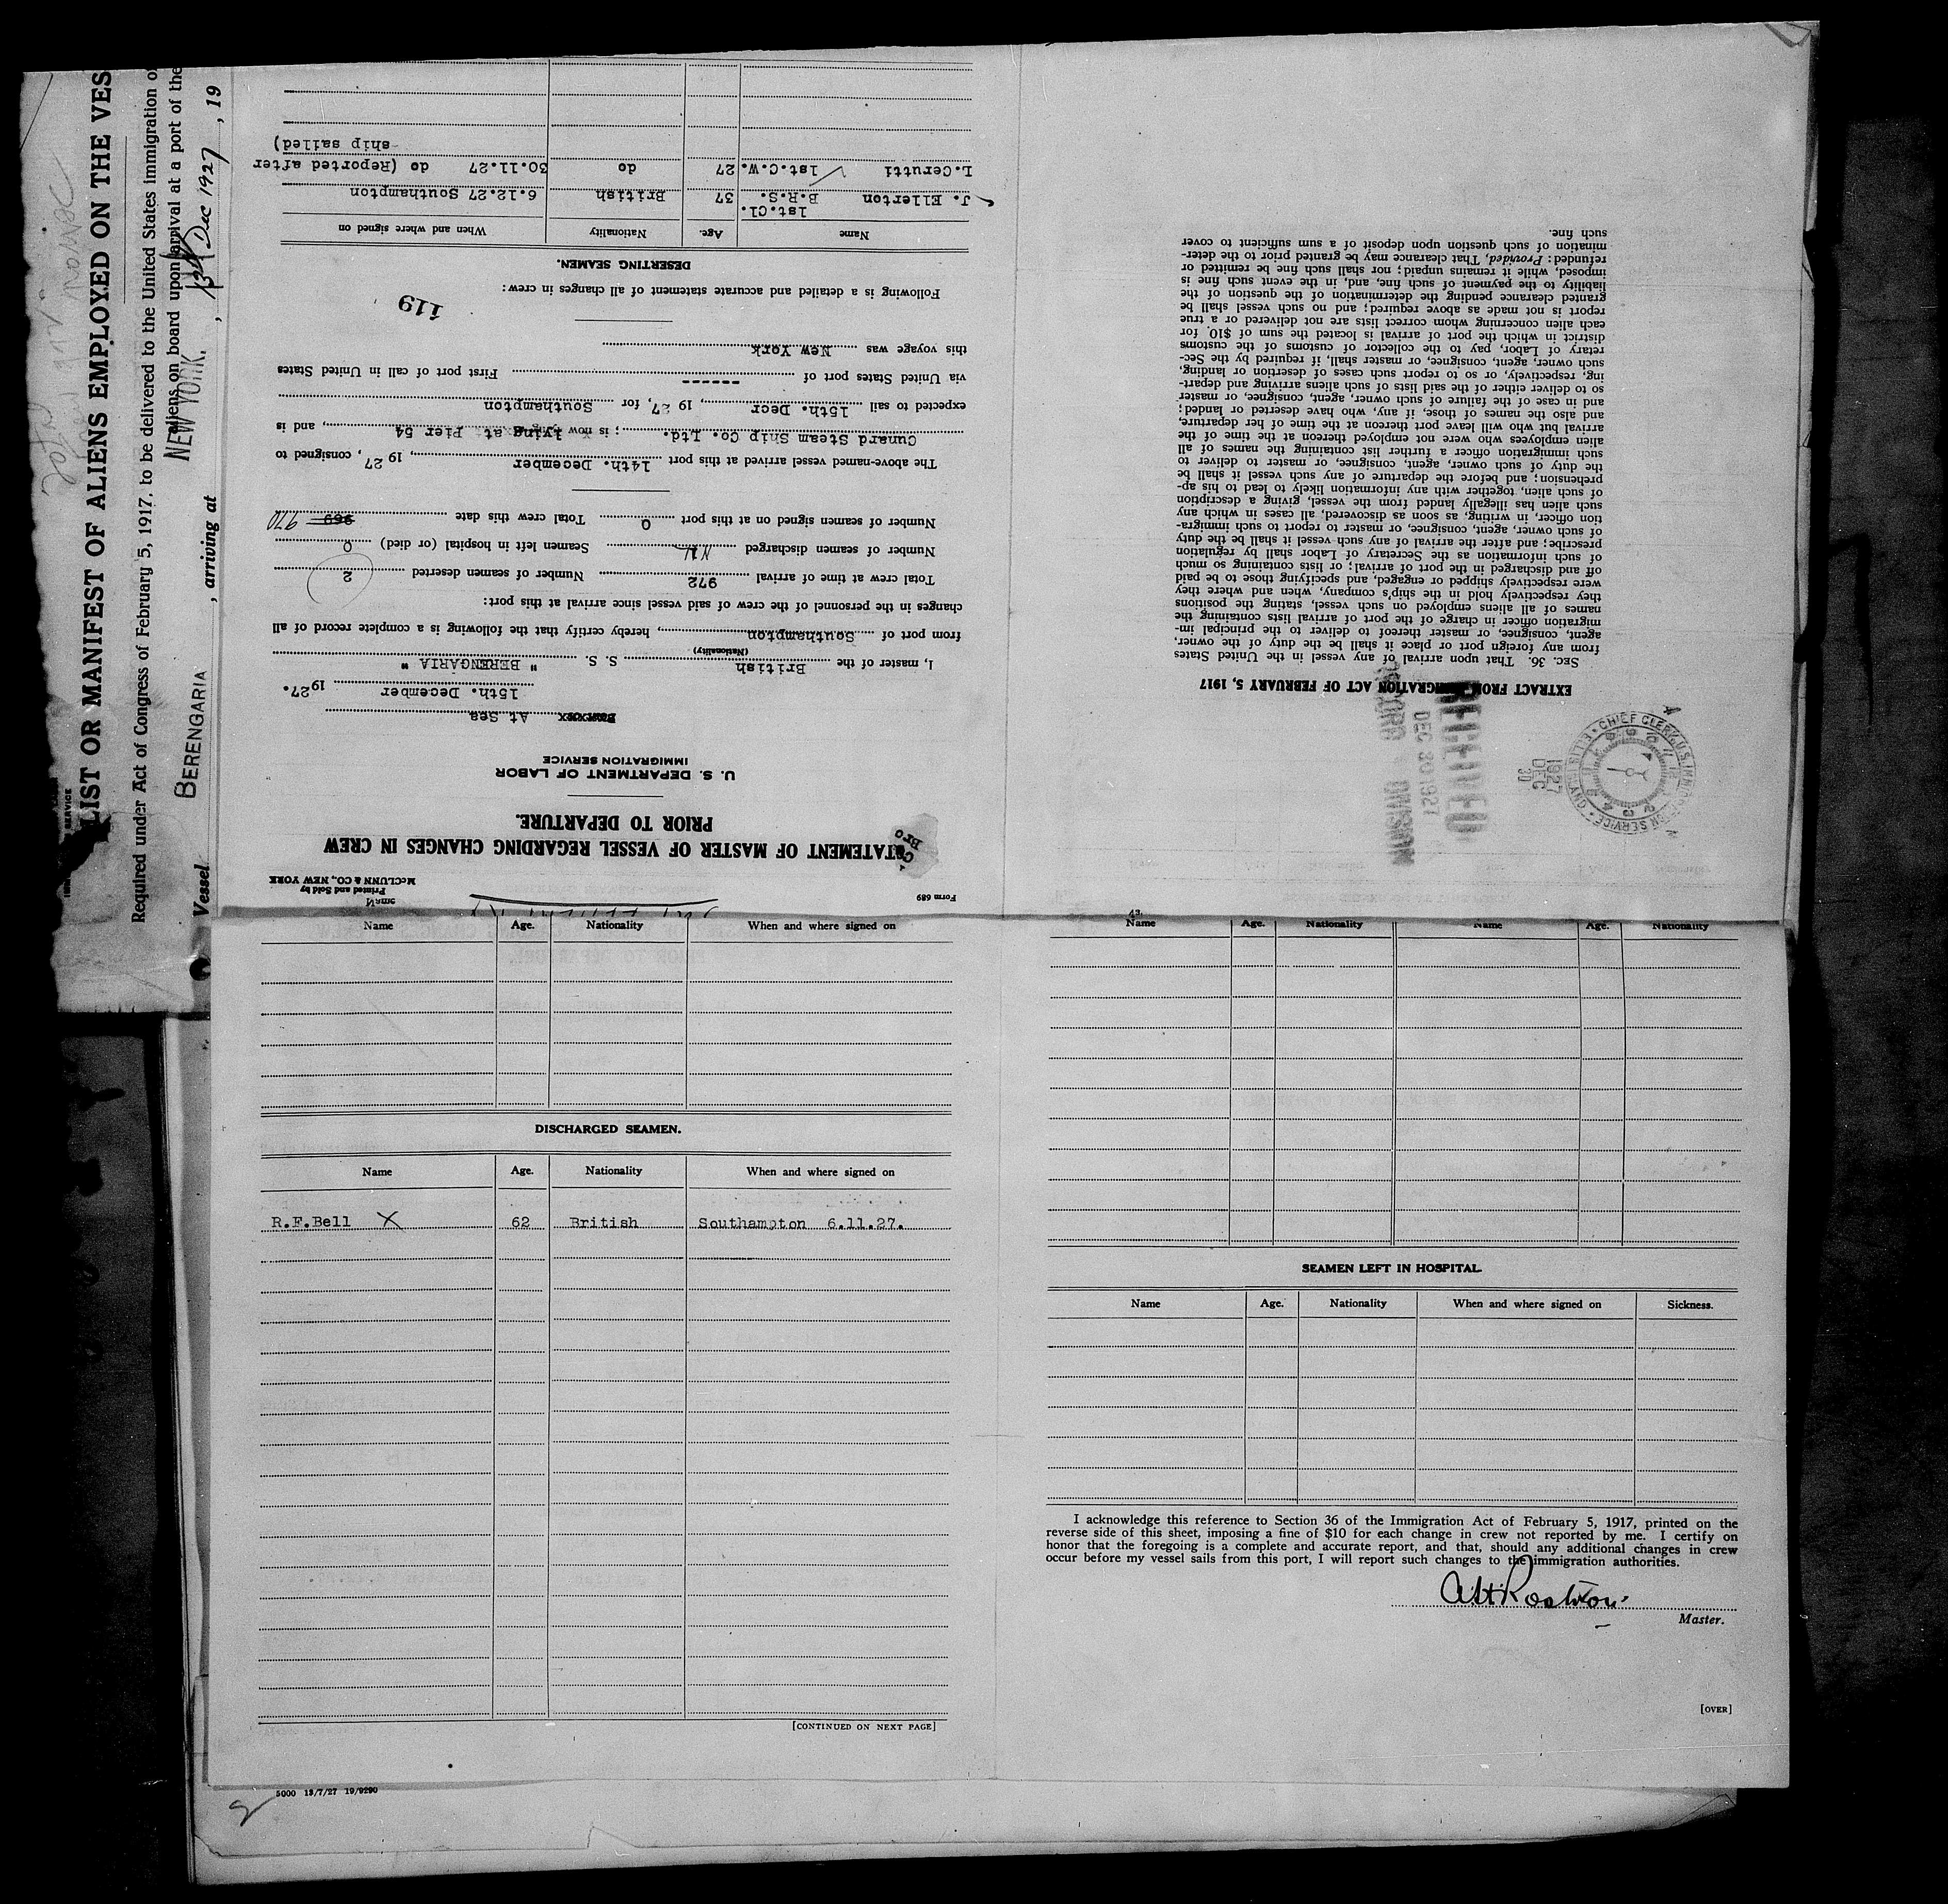 LIST OR MANIFEST OF ALIENS EMPLOYED ON THE VES
Required under Act of Congress of February 5, 1917, to be delivered to the United States immigration o
aliens on board upon arrival at a port of the
Vessel BERENGARIA , arriving at NEW YORK. , 13th Dec 1927 , 19
Form 689
Name
Printed and Sold by
McCLUNN & CO., NEW YORK
STATEMENT OF MASTER OF VESSEL REGARDING CHANGES IN CREW
PRIOR TO DEPARTURE.
U. S. DEPARTMENT OF LABOR
IMMIGRATION SERVICE
At Sea
15th. December 1927.
I, master of the British S. S. " BERENGARIA "
(Nationality)
from port of Southampton, hereby certify that the following is a complete record of all
changes in the personnel of the crew of said vessel since arrival at this port:
Total crew at time of arrival 972 Number of seamen deserted 2
Number of seamen discharged Nil Seamen left in hospital (or died) 0
Number of seamen signed on at this port 0 Total crew this date 969 970
The above-named vessel arrived at this port 14th. December, 19 27, consigned to
Cunard Steam Ship Co. Ltd. ; is now lying at Pier 54, and is
expected to sail 15th. Decr, 19 27, for Southampton
via United States port of ------ First port of call in United States
this voyage was New York
119
Following is a detailed and accurate statement of all changes in crew:
DESERTING SEAMEN.
Name Age. Nationality When and where signed on
1st.Cl.
J. Ellerton B.R.S. 37 British 6.12.27 Southampton
L.Cerutti 1st.C.W. 27 do 30.11.27 do (Reported after
ship sailed)
CHIEF CLERK, U.S. IMMIGRATION SERVICE
1927
DEC
30
RECEIVED
DEC 30 1927
DIVISION
EXTRACT FROM IMMIGRATION ACT OF FEBRUARY 5, 1917
SEC. 36. That upon arrival of any vessel in the United States
from any foreign port or place it shall be the duty of the owner,
agent, consignee, or master thereof to deliver to the principal im-
migration officer in charge of the port of arrival lists containing the
names of all aliens employed on such vessel, stating the positions
they respectively hold in the ship's company, when and where they
were respectively shipped or engaged, and specifying those to be paid
off and discharged in the port of arrival; or lists containing so much
of such information as the Secretary of Labor shall by regulation
prescribe; and after the arrival of any such vessel it shall be the duty
of such owner, agent, consignee, or master to report to such immigra-
tion officer, in writing, as soon as discovered, all cases in which any
such alien has illegally landed from the vessel, giving a description
of such alien, together with any information likely to lead to his ap-
prehension; and before the departure of any such vessel it shall be
the duty of such owner, agent, consignee, or master to deliver to
such immigration officer a further list containing the names of all
alien employees who were not employed thereon at the time of the
arrival but who will leave port thereon at the time of her departure,
and also the names of those, if any, who have deserted or landed;
and in case of the failure of such owner, agent, consignee, or master
so to deliver either of the said lists of such aliens arriving and depart-
ing, respectively, or so to report such cases of desertion or landing,
such owner, agent, consignee, or master, shall, if required by the Sec-
retary of Labor, pay to the collector of customs of the customs
district in which the port of arrival is located the sum of $10. for
each alien concerning whom correct lists are not delivered or a true
report is not made as above required; and no such vessel shall be
granted clearance pending the determination of the question of the
liability to the payment of such fine, and, in the event such fine is
imposed, while it remains unpaid; nor shall such fine be remitted or
refunded: Provided, That clearance may be granted prior to the deter-
mination of such question upon deposit of a sum sufficient to cover
such fine.
Name Age. Nationality When and where signed on
DISCHARGED SEAMEN.
Name Age. Nationality When and where signed on
R.F.Bell X 62 British Southampton 6.11.27.
[CONTINUED ON NEXT PAGE]
5000 13/7/27 19/9290
Name Age. Nationality Name Age. Nationality
SEAMEN LEFT IN HOSPITAL
Name Age. Nationality When and where signed on Sickness.
I acknowledge this reference to Section 36 of the Immigration Act of February 5, 1917, printed on the
reverse side of this sheet, imposing a fine of $10 for each change in crew not reported by me. I certify on
honor that the foregoing is a complete and accurate report, and that, should any additional changes in crew
occur before my vessel sails from this port, I will report such changes to the immigration authorities.
AHRostron
Master.
[OVER]